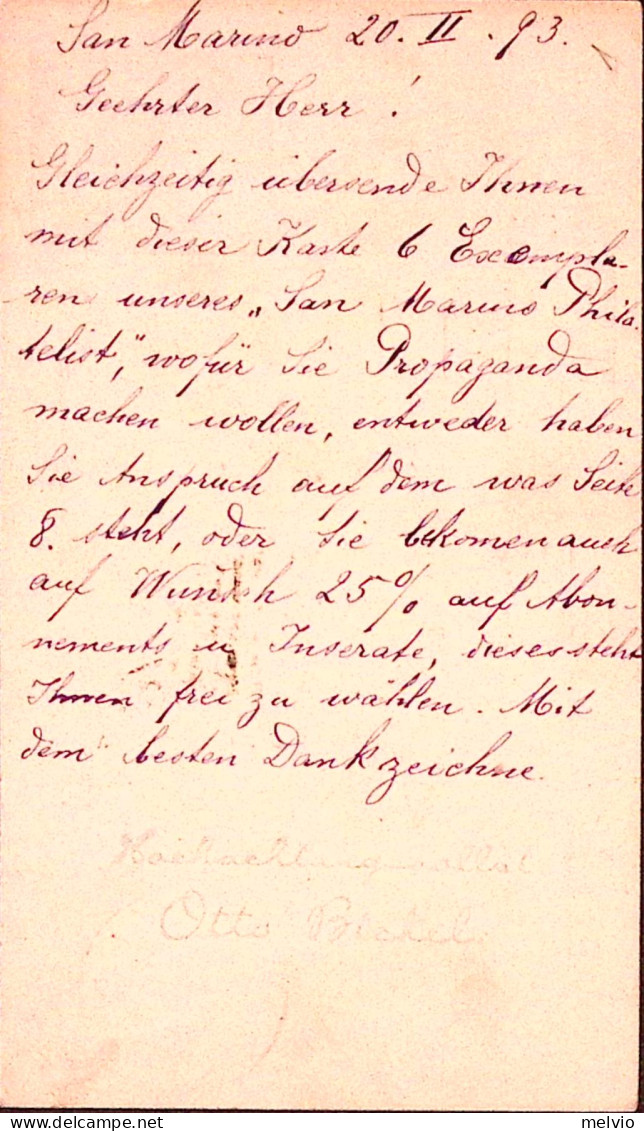 San Marino 20. II. 93.
Geehrter Herr!
Gleichzeitig übersende Ihnen
mit dieser Karte 6 Exempla-
ren unseres „San Marino Phila-
telist", wofür Sie Propaganda
machen wollen, entweder haben
Sie Anspruch auf dem was Seite
8. steht, oder Sie bekomen auch
auf Wunsch 25% auf Abon-
nements u Inserate, dieses steht
Ihnen frei zu wählen. Mit
dem besten Dank zeichne.
Hochachtungsvollst
Otto Bickel
melvio